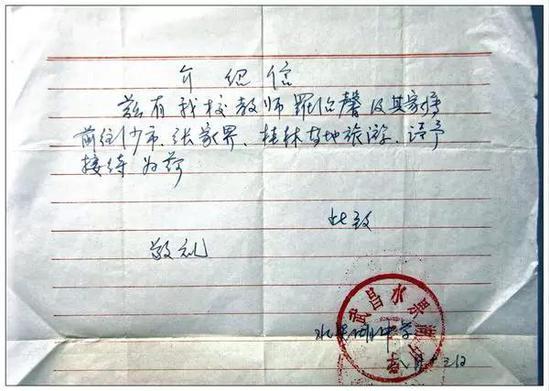 介绍信
兹有我校教师罗伯馨及其家属
前往沙市、张家界、桂林等地旅游、请予
接待为荷
此致
敬礼
水果湖中学
八月十三日
武昌水果湖